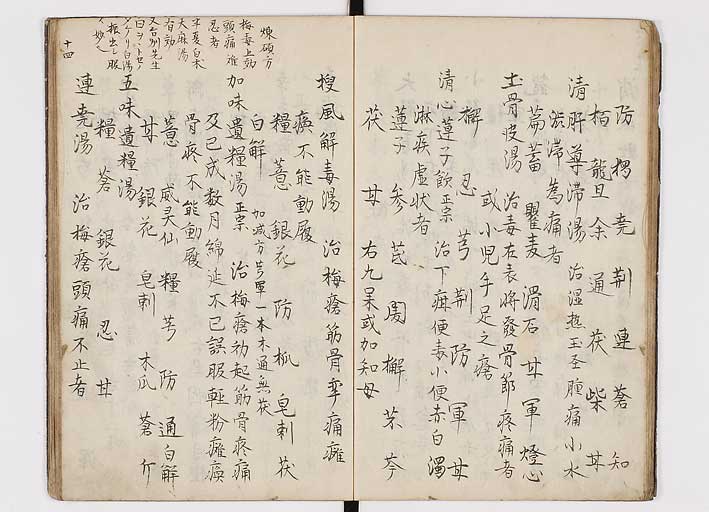 防 桜 尭 荆 連 蒼 知
栢 龍旦 余 通 茯 柴 甘
清肝導滞湯 治湿熱玉茎腫痛小水
澁滞為痛者
萹蓄 瞿麦 滑石 甘 軍 燈心
土骨皮湯 治毒在表将發骨節疼痛者
或小児手足之瘡
檞 忍 芎 荆 防 軍 甘
清心蓮子飲 正宗 治下疳便毒小便赤白濁
淋疾虚状者
蓮子 参 芪 檞 芩
茯 甘 右九呆或加知母
搜風解毒湯 治梅瘡筋骨牽痛癱
瘓不能動履
糧 薏 銀花 防 瓜 皂刺 茯
白解 加減方 芎軍一本木通無茯
加味遺糧湯 正宗 治梅瘡初起筋骨疼痛
及已成数月綿延不已誤服軽粉癱瘓
骨疼不能動履
薏 威灵仙 糧 芎 防 通 白解
甘 銀花 皂刺 木瓜 蒼 亇
五味遺糧湯
糧 蒼 銀花 忍 甘
連尭湯 治梅瘡頭痛不止者
煉礦方
梅毒上効
頭痛难
忍者
半夏白朮
天麻湯
有効
又合別先生
白
白湯
振出し服
妙人
十四